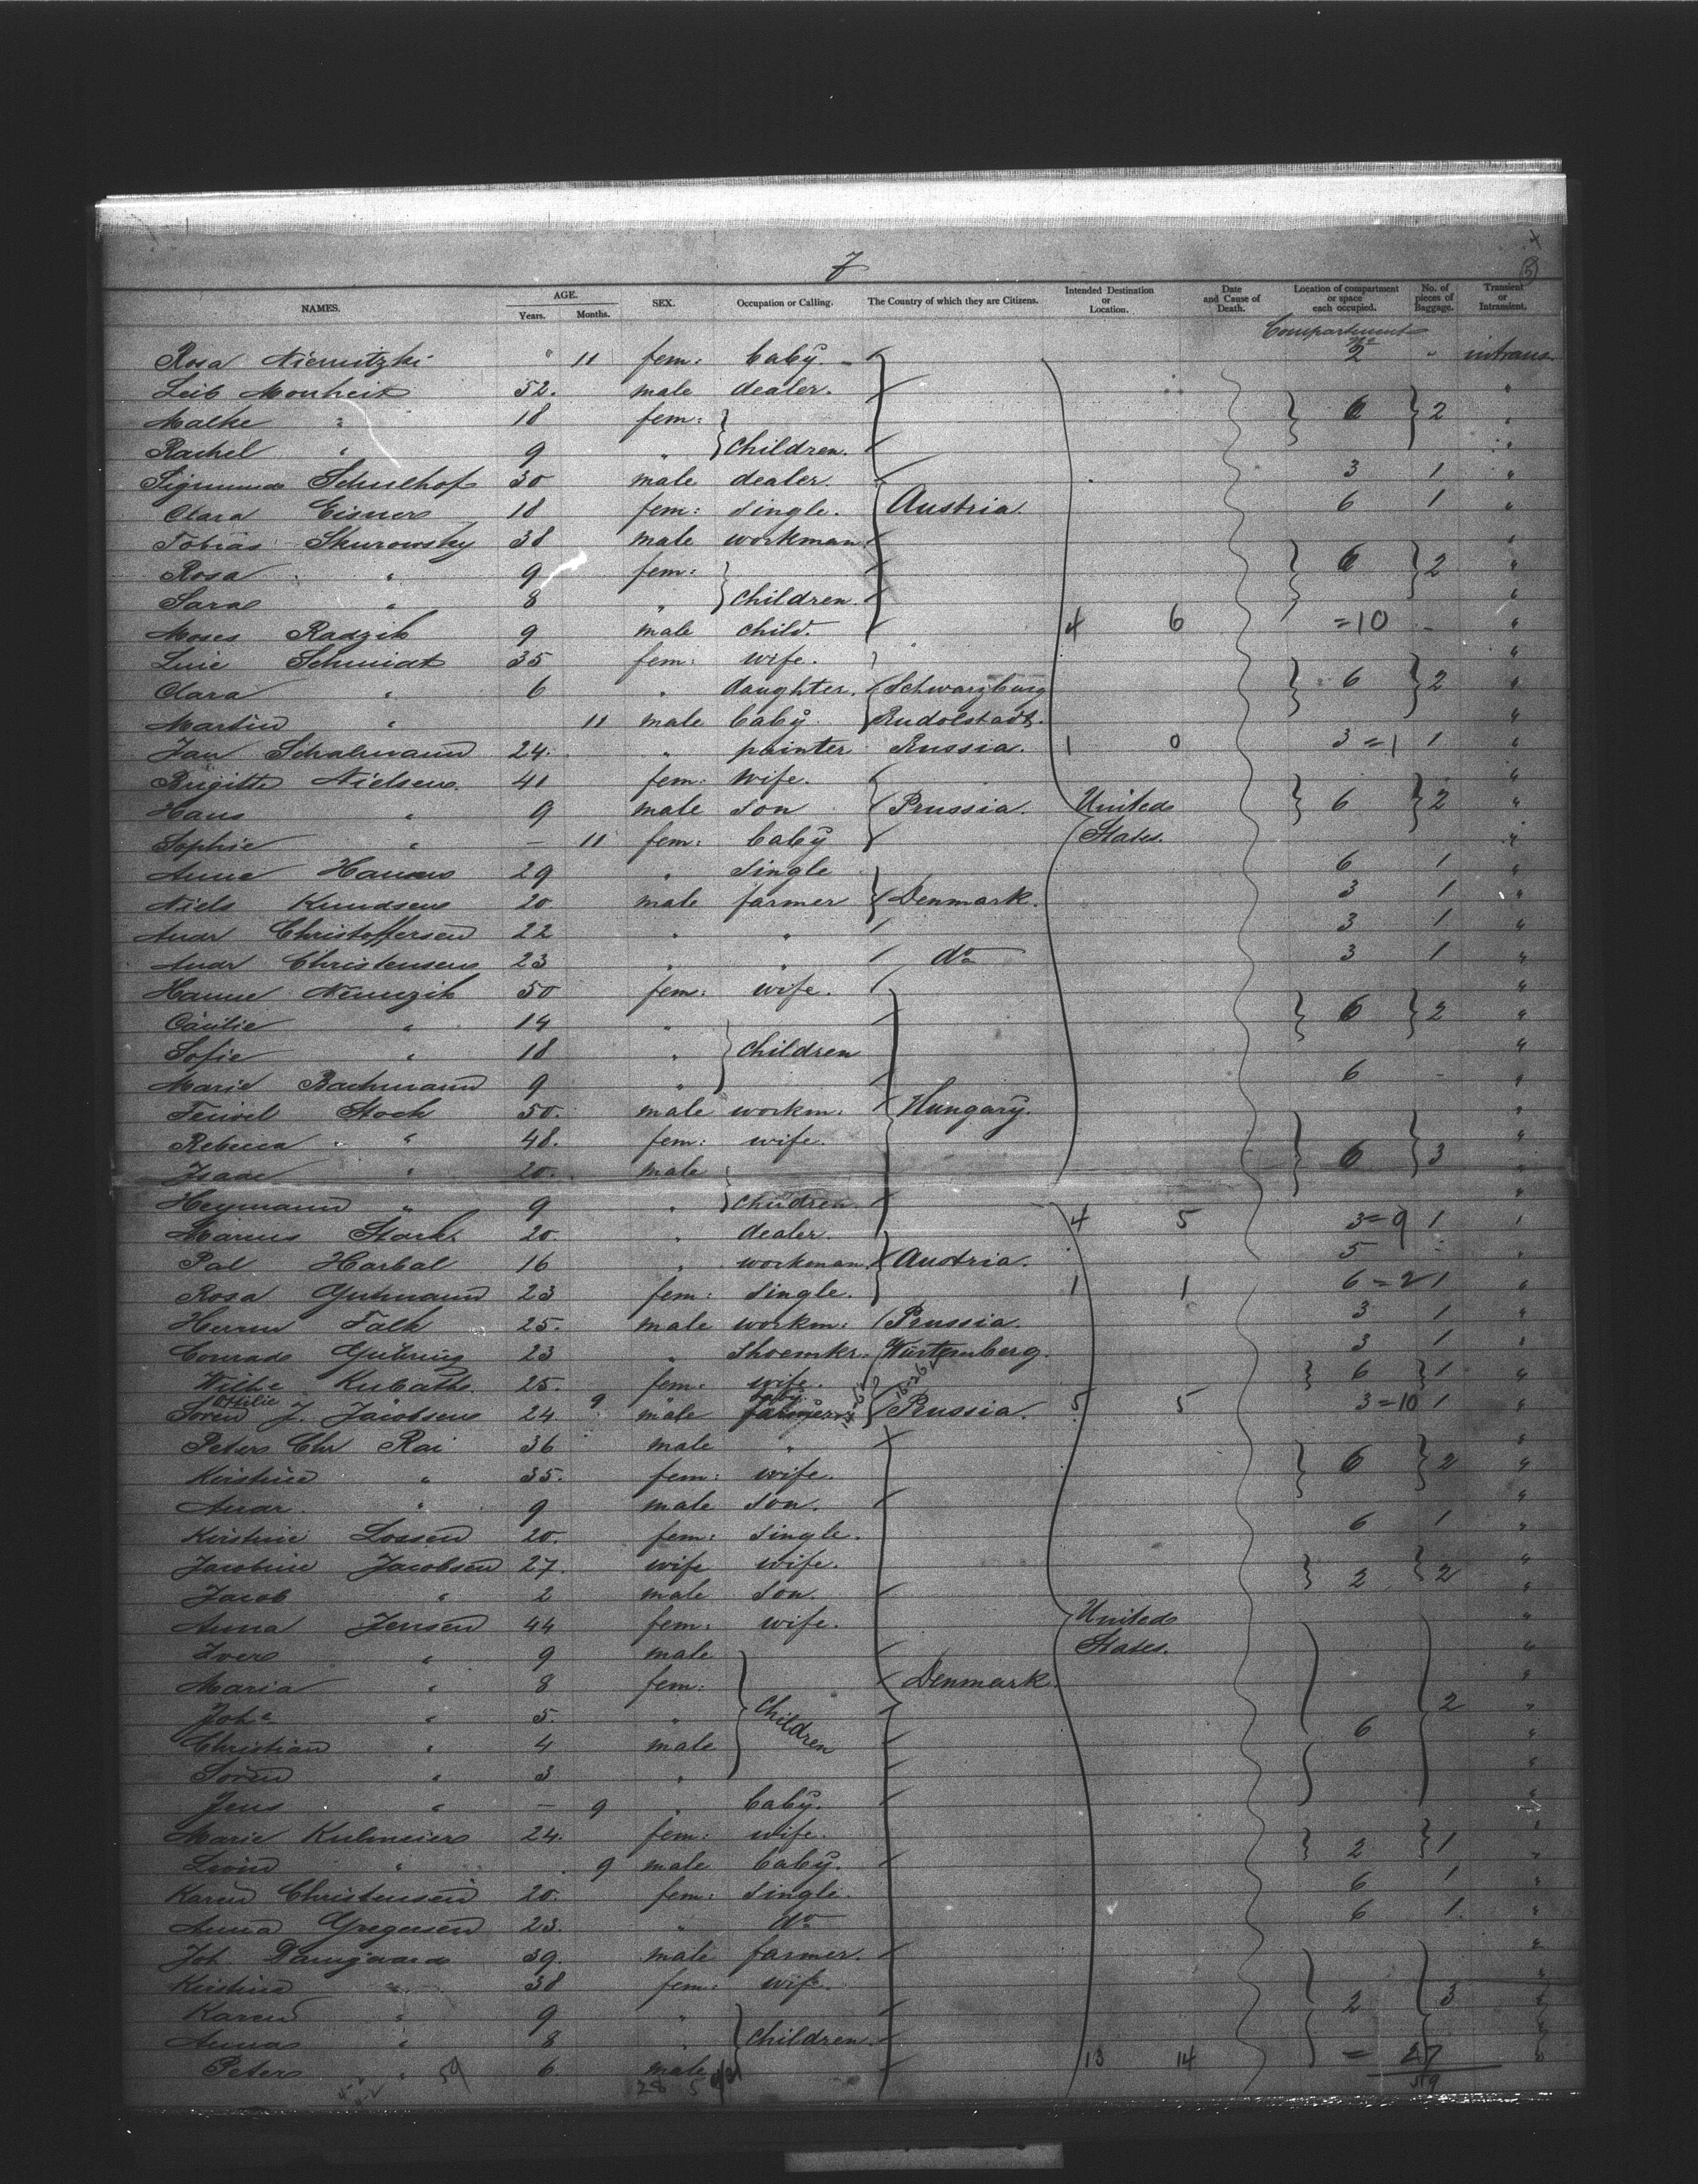 7
5
NAMES. AGE. Years. Months. SEX. Occupation or Calling. The Country of which they are Citizens. Intended Destination or Location. Date and Cause of Death. Location of compartment or space each occupied. No. of pieces of Baggage. Transient or Intransient.
Compartment
Rosa Niemitzki " 11 fem: baby. No 2 " intrans.
Leib Monheit 52. male dealer. "
Malke " 18 fem: 6 2 "
Rachel " 9 " Children. "
Sigmund Schulhof 30 male dealer. 3 1 "
Clara Eisner 18 fem: single. Austria. 6 1 "
Tobias Skurowsky 38 male workman "
Rosa " 9 fem: 6 2 "
Sara " 8 " Children. "
Moses Radzik 9 male child. 4 6 =10 - "
Luie Schmidt 35 fem: wife. "
Clara " 6 " daughter. Schwarzburg 6 2 "
Martin " 11 male baby. Rudolstadt. "
Jan Schalmann 24. " painter Russia. 1 0 3=1 1 "
Brigitte Nielsen 41 fem: wife. "
Hans " 9 male son Prussia. United 6 2 "
Sophie " - 11 fem: baby States. "
Anne Hansen 29 " single 6 1 "
Niels Knudsen 20 male farmer Denmark. 3 1 "
Andr Christoffersen 22 " " 3 1 "
Andr Christensen 23 " " do 3 1 "
Hanne Niemzik 50 fem: wife. "
Cäcilie " 14 " 6 2 "
Sofie " 18 " Children "
Marie Bachmann 9 " 6 - "
Feiwel Stock 50. male workm: Hungary. "
Rebecca " 48. fem: wife. "
Isaac " 20. male 6 3 "
Heymann " 9 " Children. "
Marcus Stark 20. " dealer. 4 5 3=9 1 "
Pal Harbal 16 " workman. Austria. 5 - "
Rosa Gutmann 23 fem: single. 1 1 6=2 1 "
Herm Falk 25. male workm: Prussia. 3 1 "
Conrad Guhring 23 " Shoemkr. Würtemberg. 3 1 "
Wilhe Kubath 25. fem. wife. 6 1 "
Ottilie 9 baby.
Soren J. Jacobsen 24 male farmer Prussia. 5 5 3=10 1 "
Peter Chr Rai 36 male " "
Kirstine " 35. fem: wife. 6 2 "
Andr. " 9 male son. "
Kirstine Lossen 20. fem: single. 6 1 "
Jacobine Jacobsen 27. wife wife. "
Jacob " 2 male son. 2 2 "
Anna Jensen 44 fem: wife. United "
Iver " 9 male States. "
Maria " 8 fem: Denmark. "
Johe " 5. " Children 2 "
Christian " 4 male 6 "
Soren " 3 " "
Jens " - 9 " baby. "
Marie Kulmeier 24. fem: wife. "
" 9 male baby. 2 1 "
Karen Christensen 20. fem: single. 6 1 "
Anna Gregersen 23. " do 6 1. "
Joh. Damgaard 39. male farmer. "
Kirstine " 38 fem: wife. "
Karen " 9 " 2 3 "
Anna " 8 " Children. "
Peter " 59 6 male 13 14 = 27 "
28 5 59